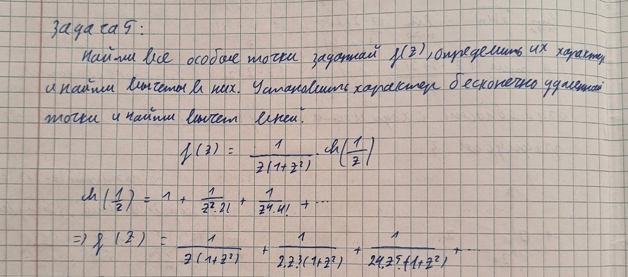 Задача 5:
Найти все особые точки заданной f(z), определить их характер
и найти вычеты в них. Установить характер бесконечно удаленной
точки и найти вычет в ней.
f(z) = 1/(z(1+z²)) · ch(1/z)
ch(1/z) = 1 + 1/(z²·2!) + 1/(z⁴·4!) + ...
=> f(z) = 1/(z(1+z²)) + 1/(2z³(1+z²)) + 1/(24z⁵(1+z²)) + ...